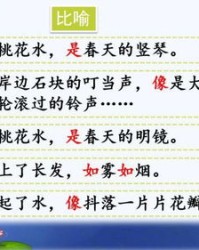 比喻
桃花水，是春天的竖琴。
岸边石块的叮当声，像是大
轮滚过的铃声……
桃花水，是春天的明镜。
上了长发，如雾如烟。
起了水，像抖落一片片花瓣